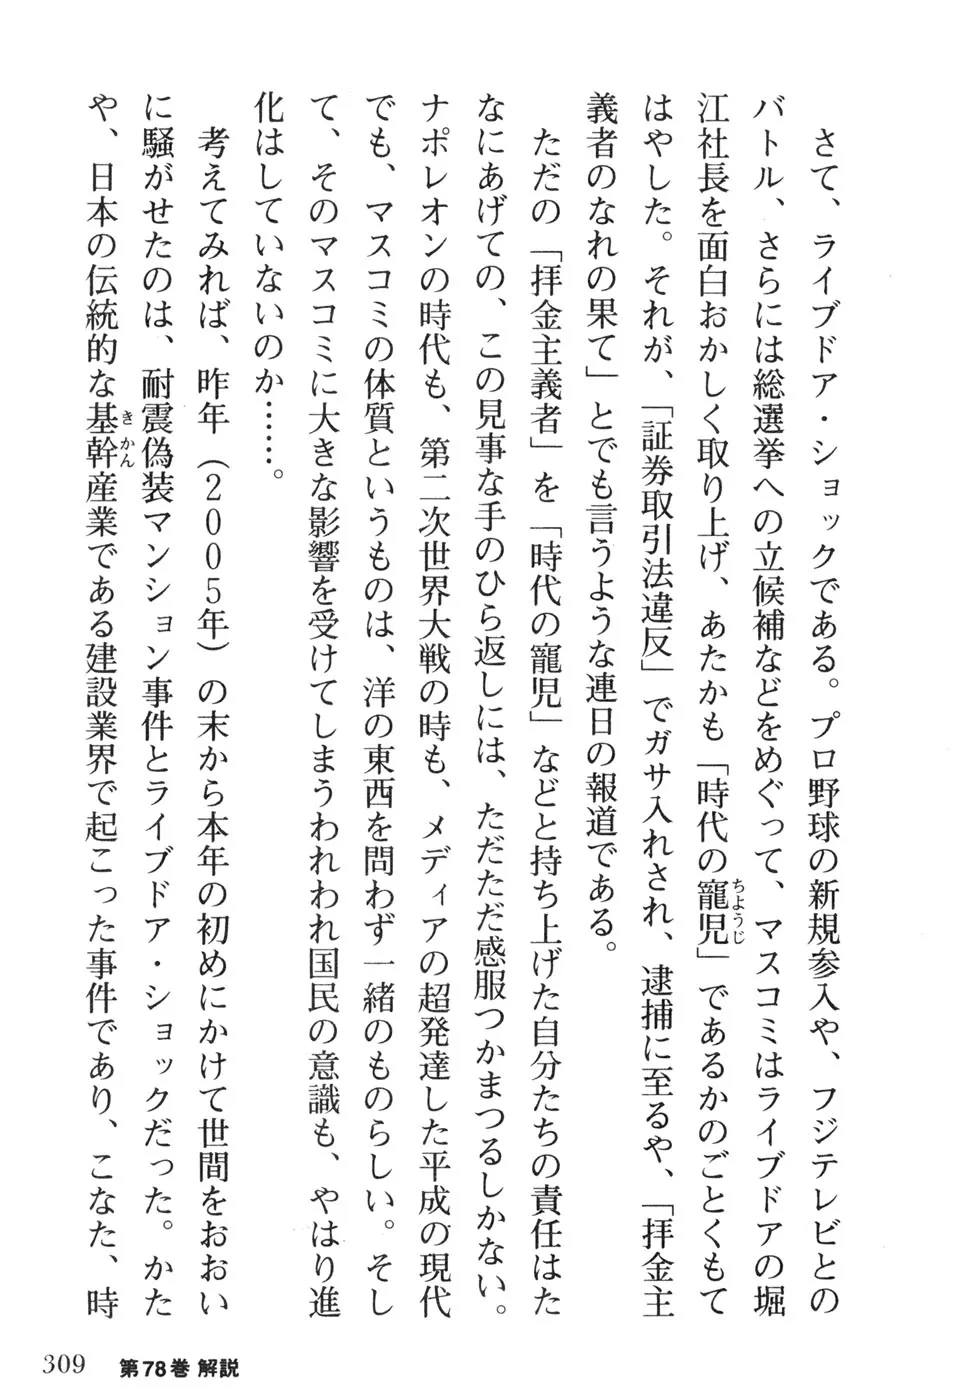 さて、ライブドア・ショックである。プロ野球の新規参入や、フジテレビとの
バトル、さらには総選挙への立候補などをめぐって、マスコミはライブドアの堀
江社長を面白おかしく取り上げ、あたかも「時代の寵児」であるかのごとくもて
ちようじ
はやした。それが、「証券取引法違反」でガサ入れされ、逮捕に至るや、「拝金主
義者のなれの果て」とでも言うような連日の報道である。
ただの「拝金主義者」を「時代の寵児」などと持ち上げた自分たちの責任はた
なにあげての、この見事な手のひら返しには、ただただ感服つかまつるしかない。
ナポレオンの時代も、第二次世界大戦の時も、メディアの超発達した平成の現代
でも、マスコミの体質というものは、洋の東西を問わず一緒のものらしい。そし
て、そのマスコミに大きな影響を受けてしまうわれわれ国民の意識も、やはり進
化はしていないのか……。
考えてみれば、昨年（2005年）の末から本年の初めにかけて世間をおおい
に騒がせたのは、耐震偽装マンション事件とライブドア・ショックだった。かた
や、日本の伝統的な基幹産業である建設業界で起こった事件であり、こなた、時
きかん
309 第78巻 解説